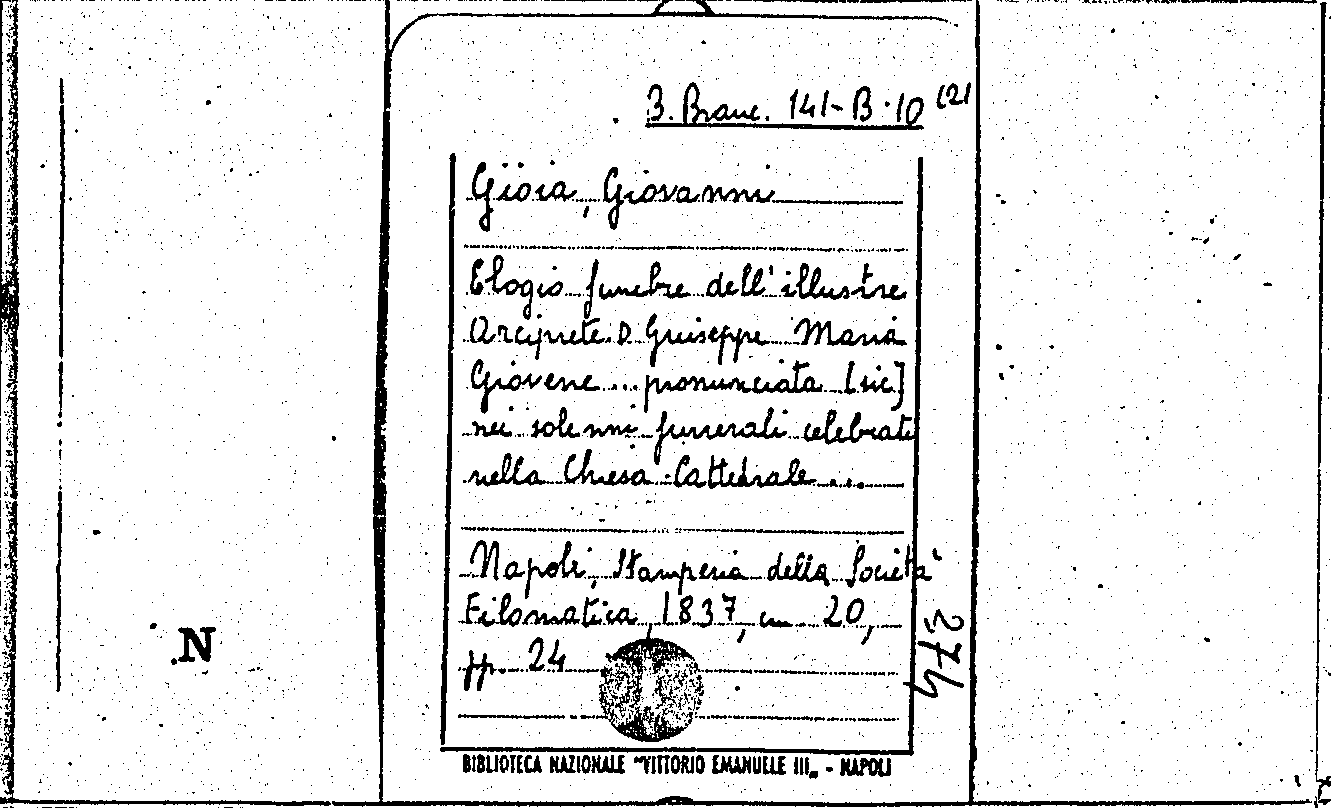 B. Branc. 141-B-10 (2)
Gioia, Giovanni
Elogio funebre dell'illustre
Arciprete D Giuseppe Maria
Giovene ... pronunciata [sic]
nei solenni funerali celebrati
nella Chiesa Cattedrale ...
Napoli, Stamperia della Società
Filomatica, 1837, cm. 20,
pp. 24
274
N
BIBLIOTECA NAZIONALE "VITTORIO EMANUELE III„ - NAPOLI